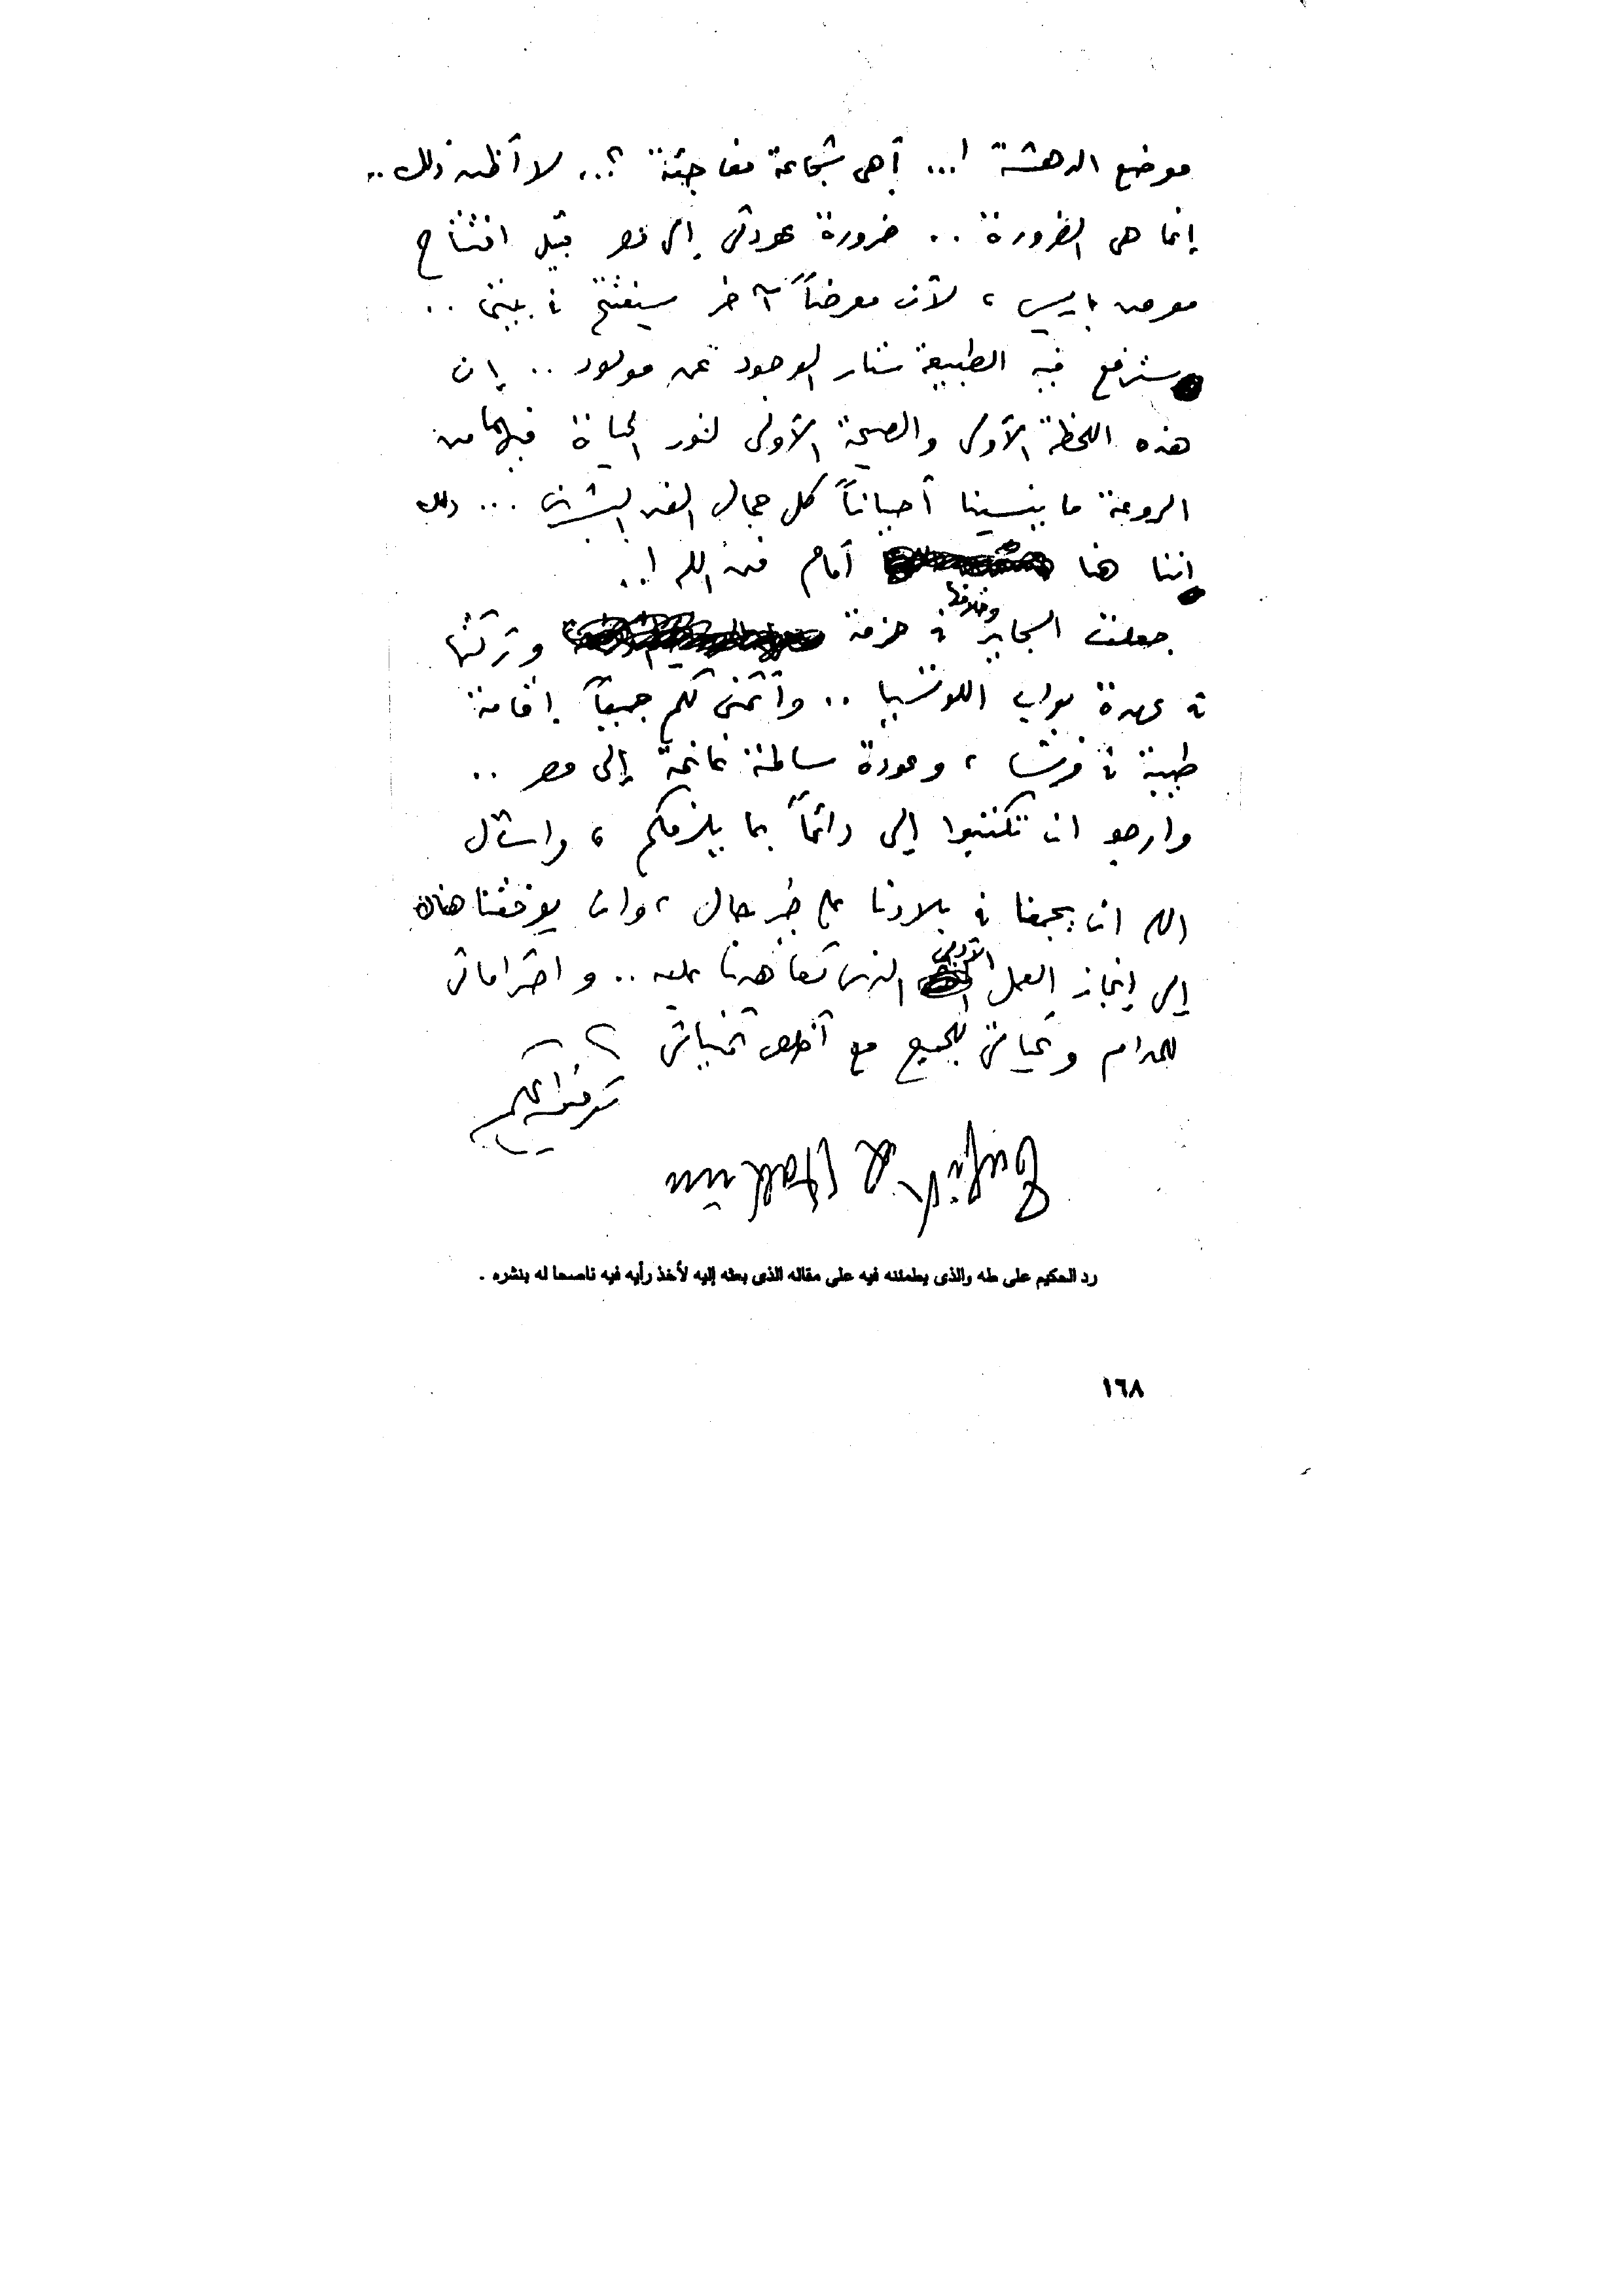 موضع الدهشة !... أهى شجاعة مفاجئة ؟.. لا أظن ذلك ..
إنما هى الضرورة .. ضرورة عودتى إلى مصر قبل افتتاح
معرض باريس ، لأن معرضاً آخر سيفتتح فى بيتى ..
سترفع فيه الطبيعة ستار الوجود عن مولود .. إن
هذه اللحظة الأولى والصيحة الأولى لنور الحياة فيهما من
الروعة ما ينسينا أحياناً كل جمال الفن البشرى ... ذلك
اننا هنا أمام فن الله !..
جعلت السجاير وخلافها فى حزمة وتركتها
فى عهدة بواب اللوتسيا .. وأتمنى لكم جميعاً إقامة
طيبة فى فرنسا ، وعودة سالمة غانمة إلى مصر ..
وارجو ان تكتبوا إلى دائماً بما يلزمكم ، واسأل
الله ان يجمعنا فى بلادنا على خير حال ، وان يوفقنا هناك
إلى إنجاز العمل الأدبى الذى تعاهدنا عليه .. واحتراماتى
للمدام وتحياتى للجميع مع أخلص تحياتى
توفيق الحكيم
Tewfik el Hakim
رد الحكيم على طه والذى يطمئنه فيه على مقاله الذى بعثه إليه لأخذ رأيه فيه ناصحا له بنشره .
١٦٨